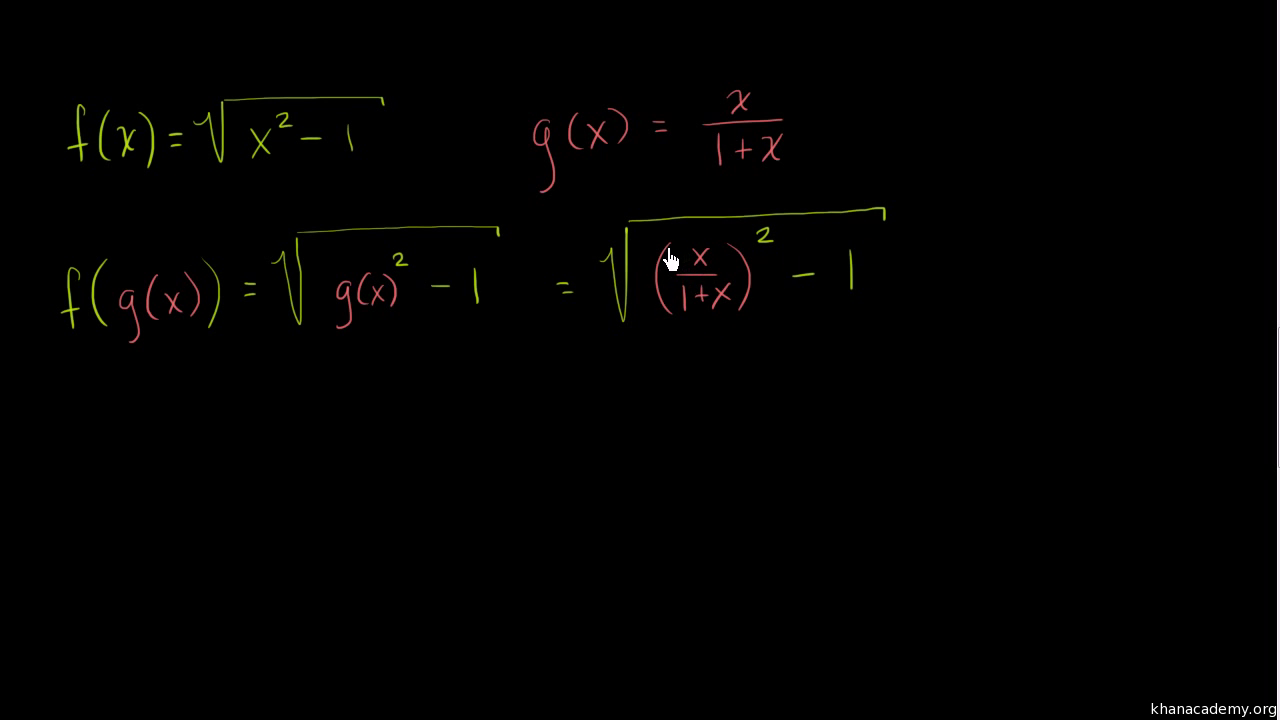 f(x) = √(x² - 1)    g(x) = x/(1+x)
f(g(x)) = √(g(x)² - 1) = √((x/(1+x))² - 1)
khanacademy.org